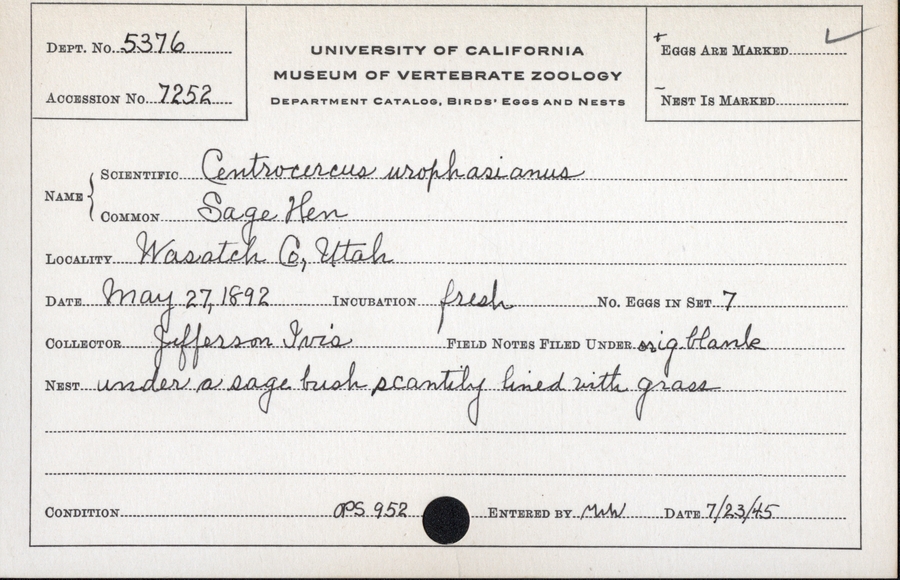 Dept. No. 5376
Accession No. 7252
UNIVERSITY OF CALIFORNIA
MUSEUM OF VERTEBRATE ZOOLOGY
Department Catalog, Birds' Eggs and Nests
+ Eggs Are Marked ✓
– Nest Is Marked
Name { Scientific Centrocercus urophasianus
Common Sage Hen
Locality Wasatch Co, Utah
Date May 27, 1892 Incubation fresh No. Eggs in Set 7
Collector Jefferson Ivis Field Notes Filed Under orig blank
Nest under a sage bush scantily lined with grass
Condition OPS 952 Entered by Date 7/23/45